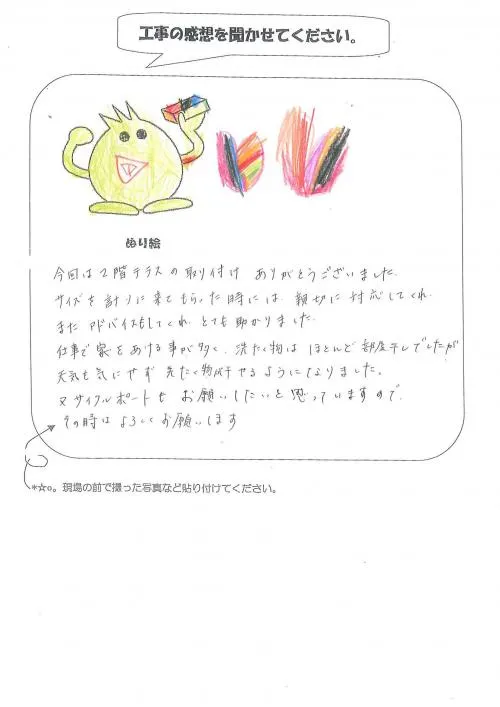 工事の感想を聞かせてください。
ぬり絵
今回は2階テラスの取り付け ありがとうございました。
サイズを計りに来てもらった時には、親切に対応してくれ、
また アドバイスもしてくれ とても助かりました。
仕事で家をあける事が多く、洗たく物は ほとんど 部屋干しでしたが
天気を気にせず 洗たく物が干せるようになりました。
又サイクルポートも お願いしたいと思っていますので、
その時は よろしくお願いします
*☆o。現場の前で撮った写真など貼り付けてください。